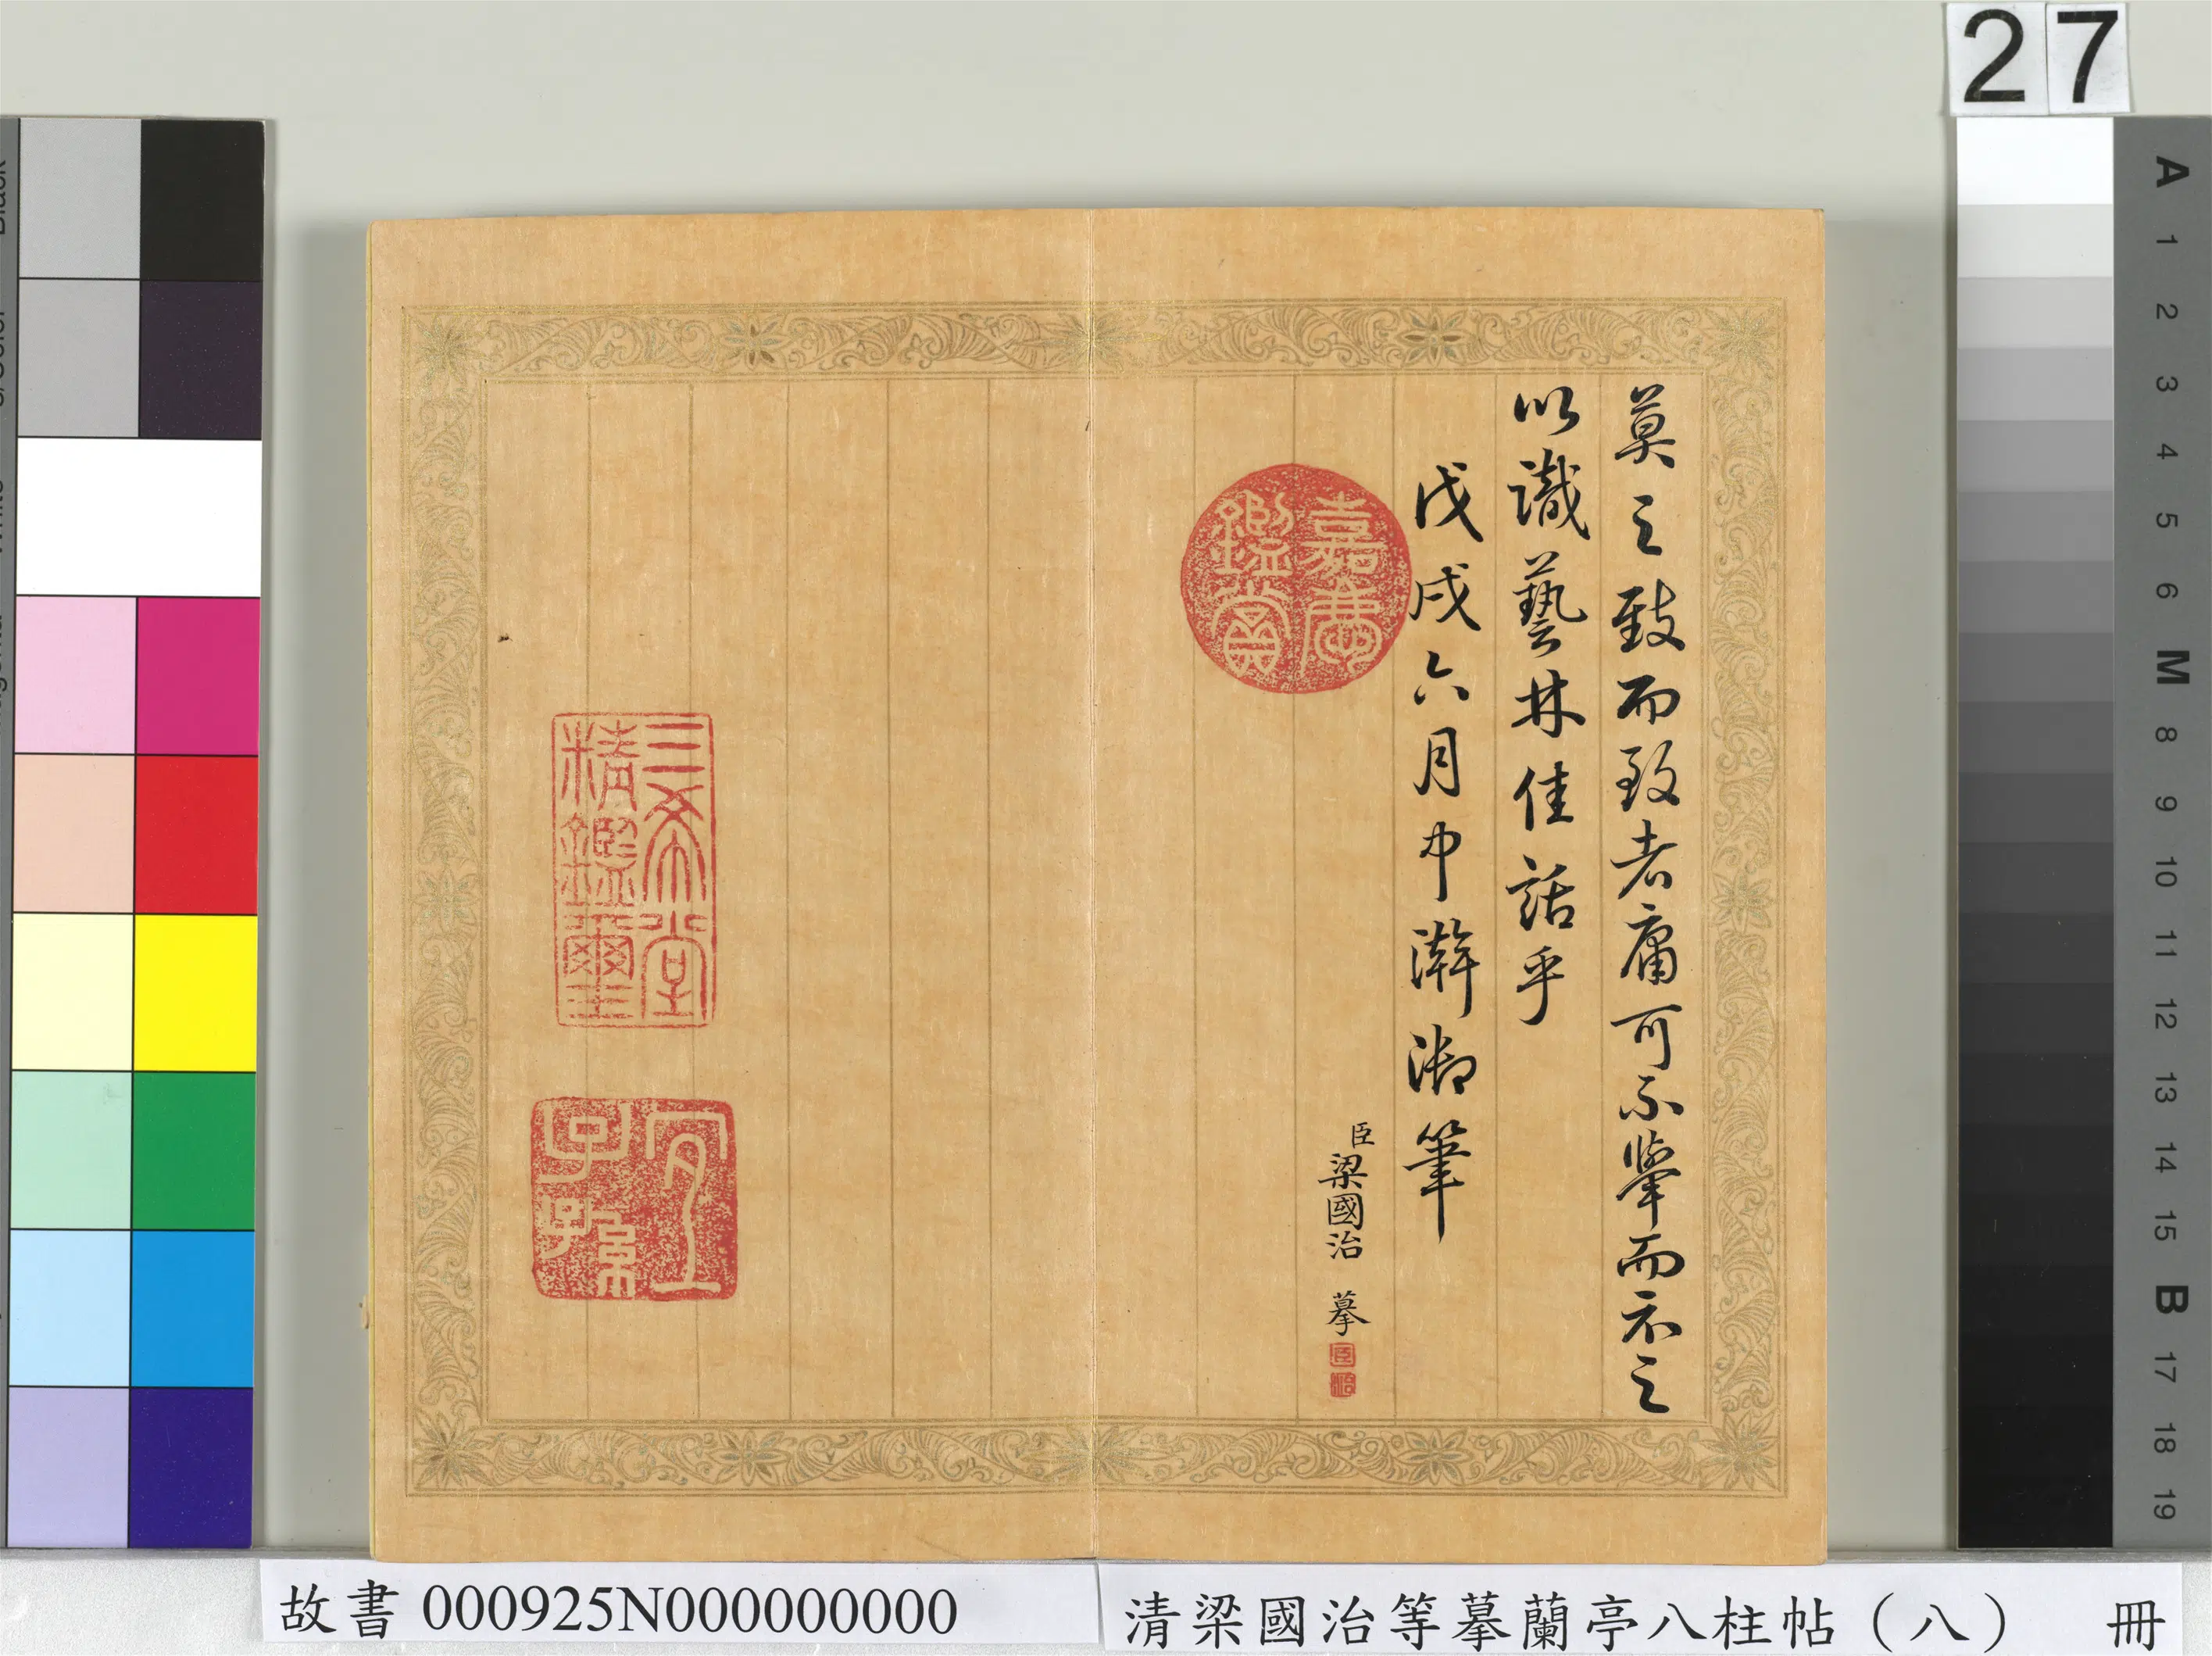 27
莫之致而致者庸可不舉而示之
以識藝林佳話乎
戊戌六月中澣御筆
臣梁國治 摹
嘉慶鑑賞
三希堂精鑑璽
宜子孫
故書 000925N000000000
清梁國治等摹蘭亭八柱帖（八） 冊
A 1 2 3 4 5 6 M 8 9 10 11 12 13 14 15 B 17 18 19